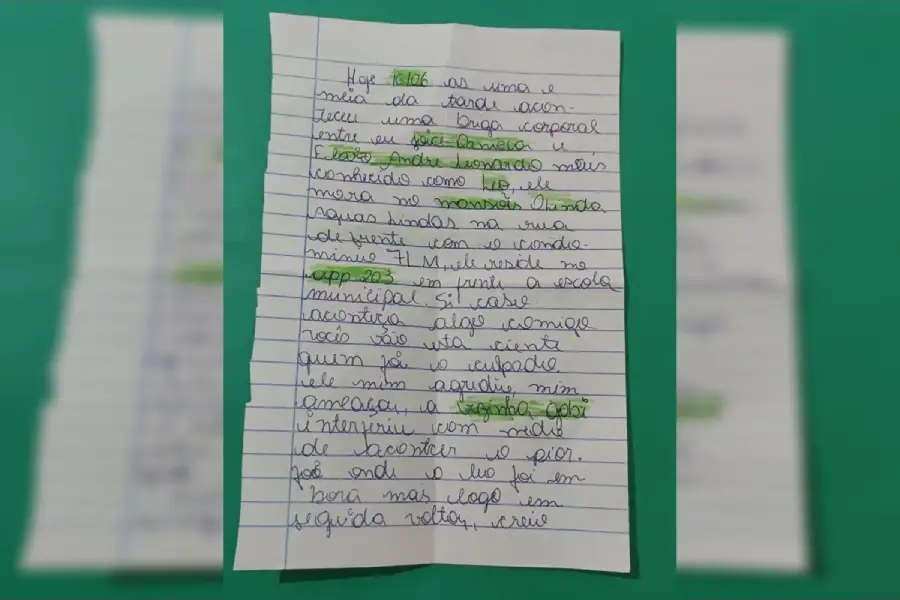 Hoje 16/06 as uma e
meia da tarde acon-
teceu uma briga corporal
entre eu Joice Daniela e
Flavio Andre Leonardo mais
conhecido como Leo, ele
mora no mansões Olinda
Aguas Lindas na rua
de frente com o condo-
minio 7 LM, ele reside no
app 203 em frente a escola
municipal. Si caso
aconteça algo comigo
vocês vão esta ciente
quem foi o culpado.
ele mim agrediu, mim
ameaçou, a vizinha Gabi
interferiu com medo
de acontcer o pior.
foi onde o leo foi em
bora mas logo em
seguida voltou, creio